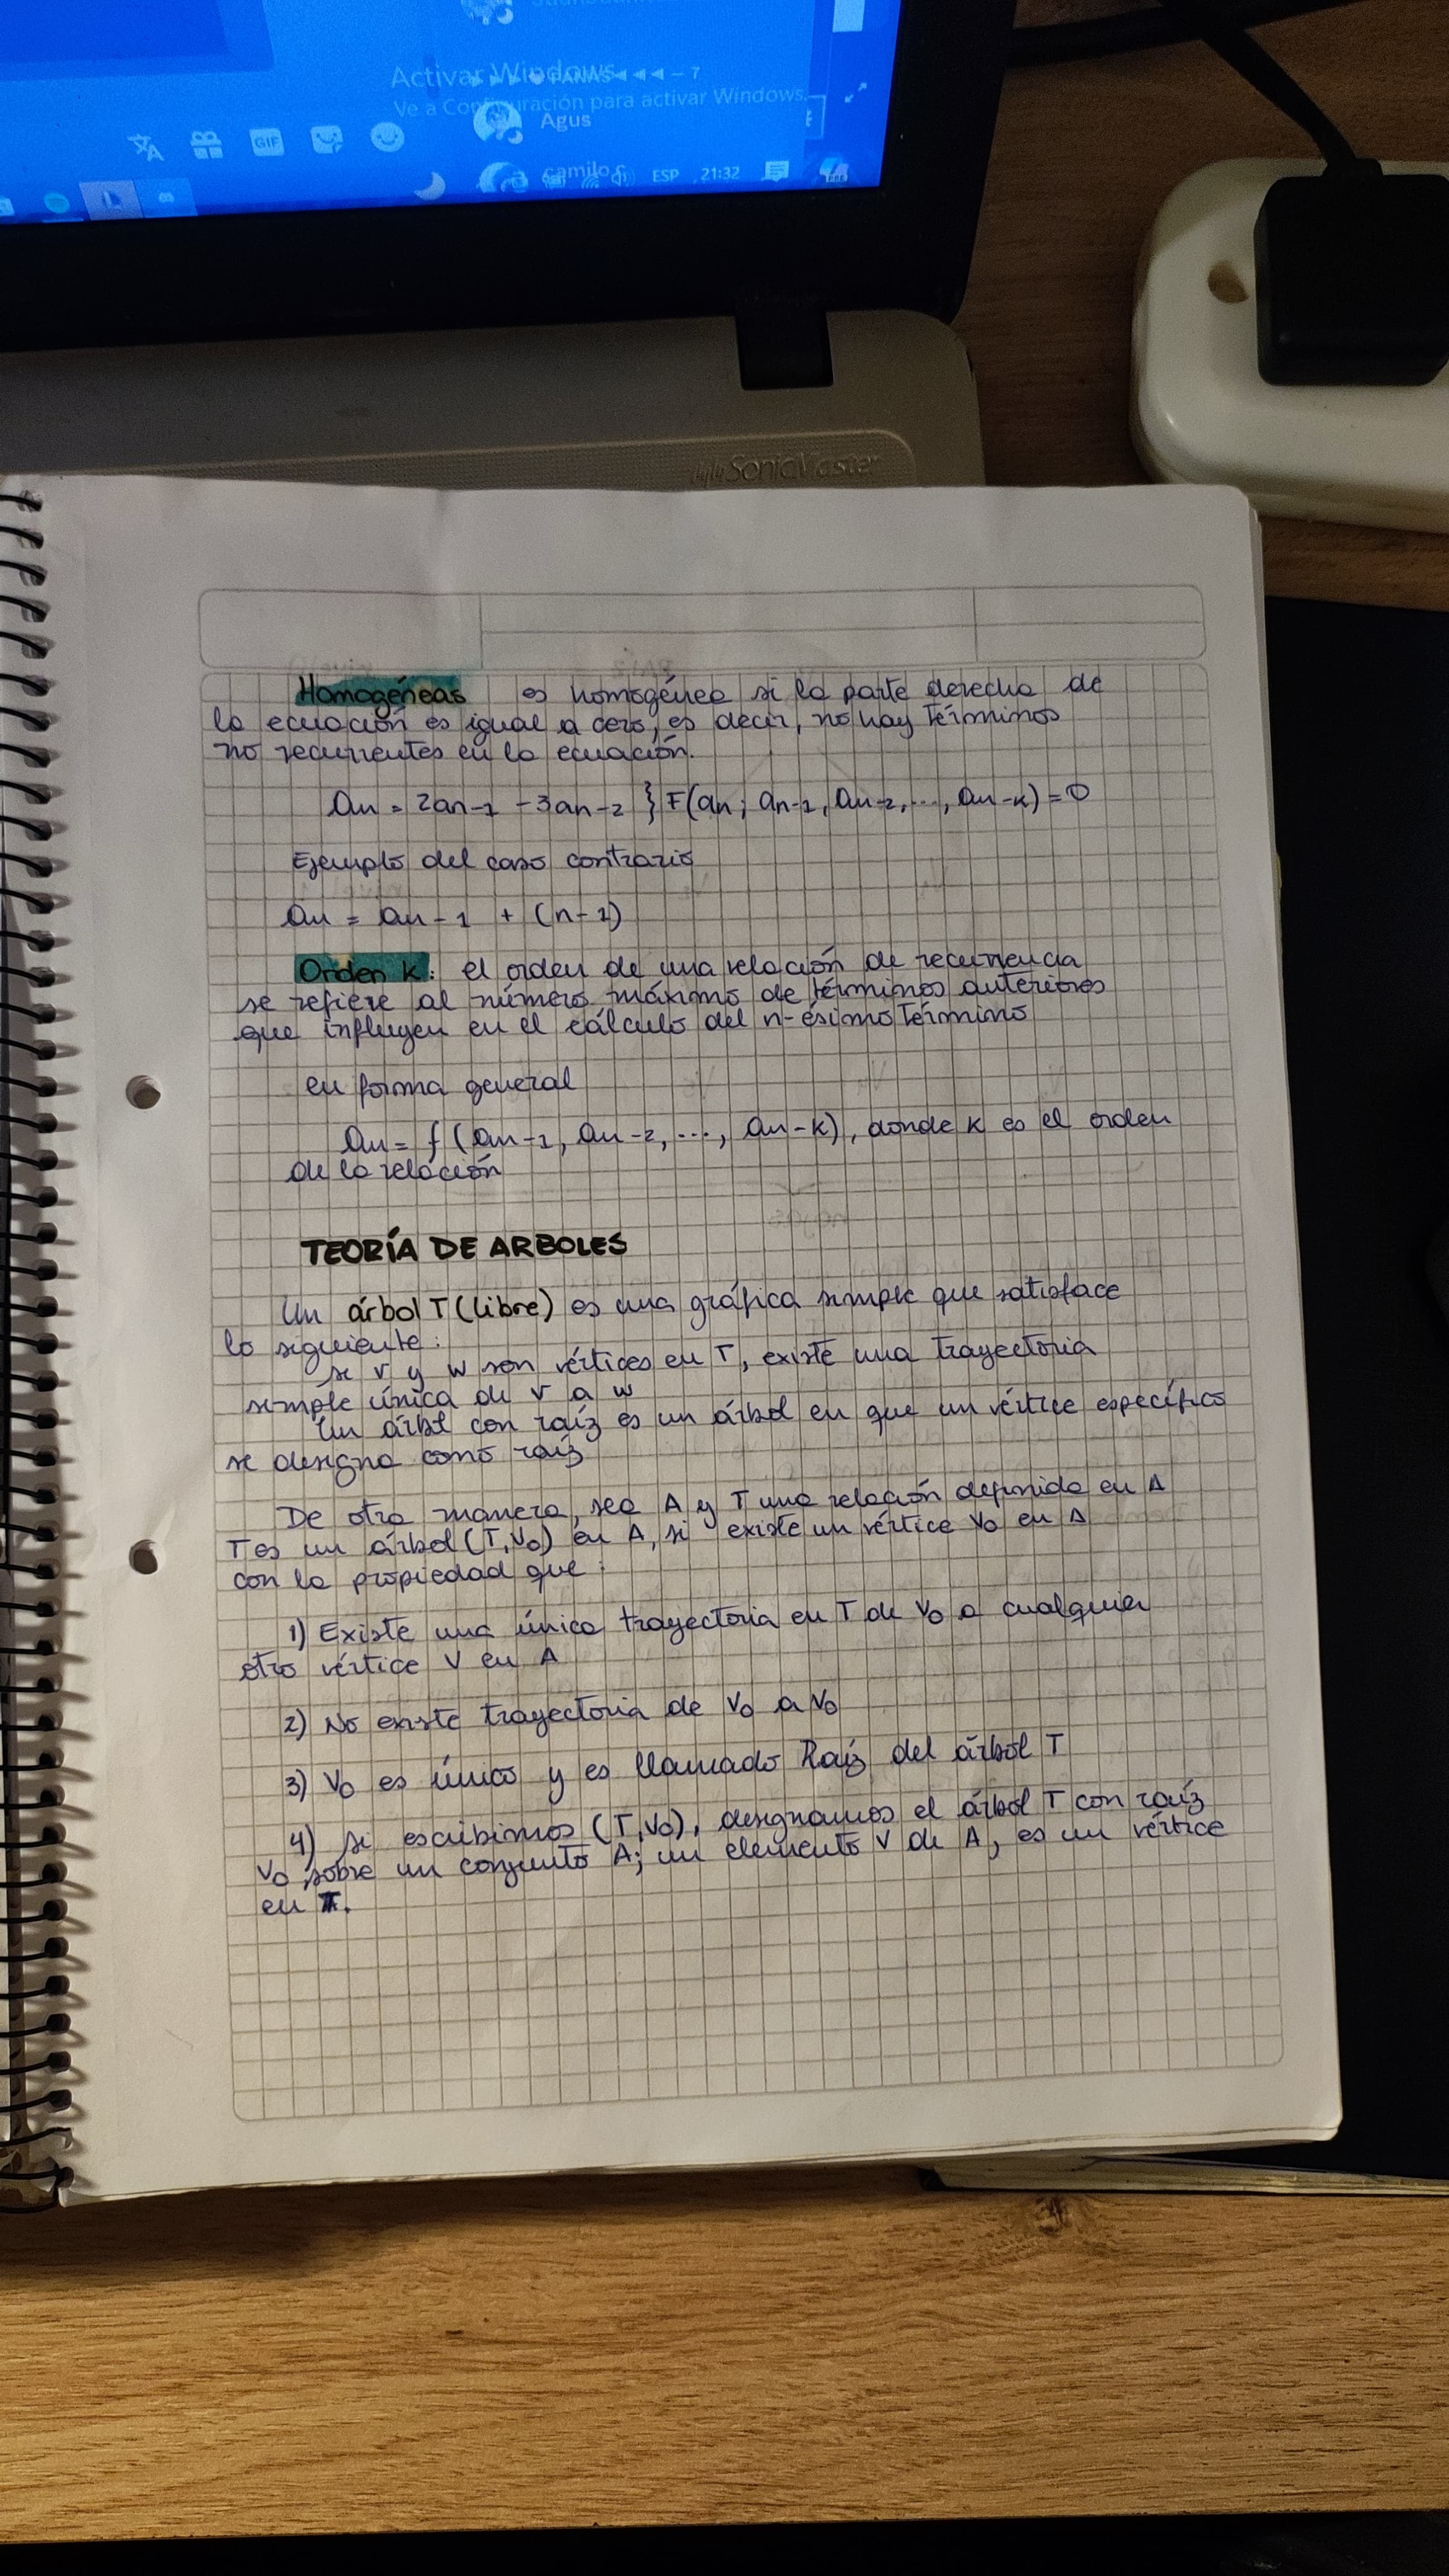 Activar Windows
Ve a Configuración para activar Windows.
Agus
GIF
camilo
ESP 21:32
SonicMaster
Homogéneas es homogénea si la parte derecha de
la ecuación es igual a cero, es decir, no hay términos
no recurrentes en la ecuación.
an = 2an-1 - 3an-2 } F(an, an-1, an-2, ..., an-k) = 0
Ejemplo del caso contrario
an = an-1 + (n-1)
Orden k: el orden de una relación de recurrencia
se refiere al número máximo de términos anteriores
que influyen en el cálculo del n-ésimo término
en forma general
an = f (an-1, an-2, ..., an-k), donde k es el orden
de la relación
TEORÍA DE ARBOLES
Un árbol T (libre) es una gráfica simple que satisface
lo siguiente:
si v y w son vértices en T, existe una trayectoria
simple única de v a w
Un árbol con raíz es un árbol en que un vértice específico
se designa como raíz
De otra manera, sea A y T una relación definida en A
T es un árbol (T, V0) en A, si existe un vértice V0 en A
con la propiedad que:
1) Existe una única trayectoria en T de V0 a cualquier
otro vértice V en A
2) No existe trayectoria de V0 a V0
3) V0 es único y es llamado Raíz del árbol T
4) si escribimos (T, V0), designamos el árbol T con raíz
V0 sobre un conjunto A; un elemento V de A, es un vértice
en T.